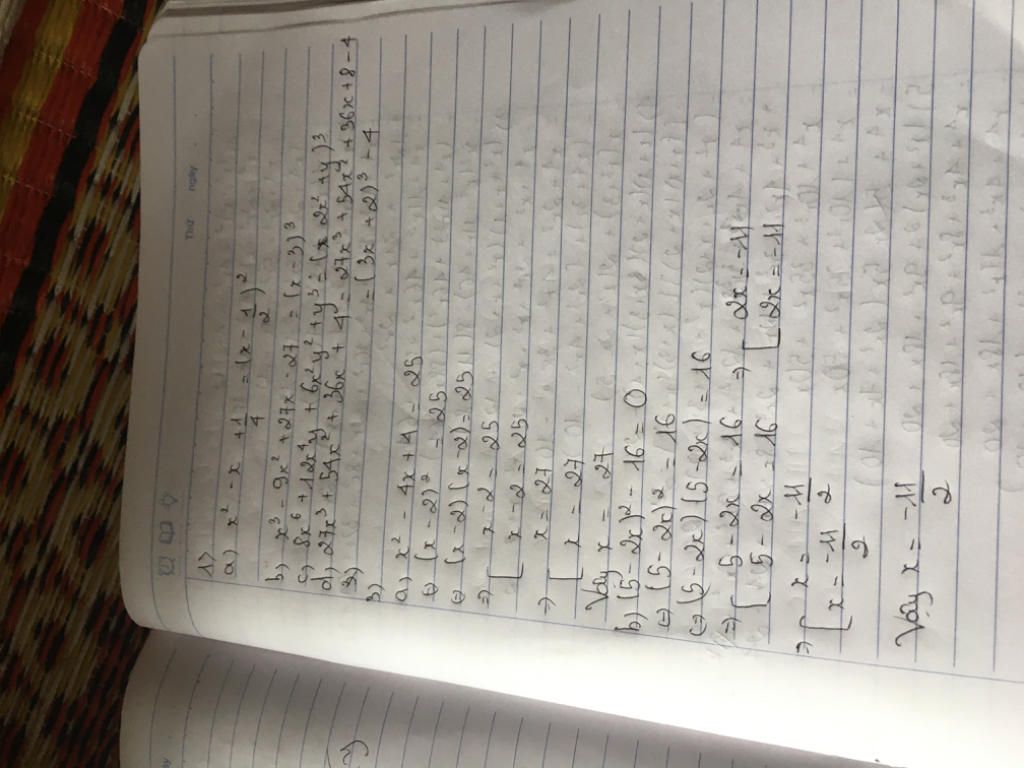 Thứ ngày
1>
a) x² - x + 1/4 = (x - 1/2)²
b) x³ - 9x² + 27x - 27 = (x - 3)³
c) 8x⁶ + 12x⁴y + 6x²y² + y³ = (2x² + y)³
d) 27x³ + 54x² + 36x + 4 = 27x³ + 54x² + 36x + 8 - 4
= (3x + 2)³ - 4
3)
a) x² - 4x + 4 = 25
⇔ (x - 2)² = 25
⇔ (x - 2)(x - 2) = 25
⇒ [ x - 2 = 25
[ x - 2 = 25
⇒ [ x = 27
[ x = 27
Vậy x = 27
b) (5 - 2x)² - 16 = 0
⇔ (5 - 2x)² = 16
⇔ (5 - 2x)(5 - 2x) = 16
⇒ [ 5 - 2x = 16 ⇒ [ 2x = -11
[ 5 - 2x = 16 [ 2x = -11
⇒ [ x = -11/2
[ x = -11/2
Vậy x = -11/2